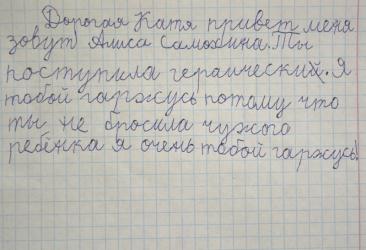 Дорогая Катя привет меня
зовут Алиса Самохина. Ты
поступила гераический. Я
тобой гаржусь потому что
ты не бросила чужого
ребёнка я очень тобой гаржусь!